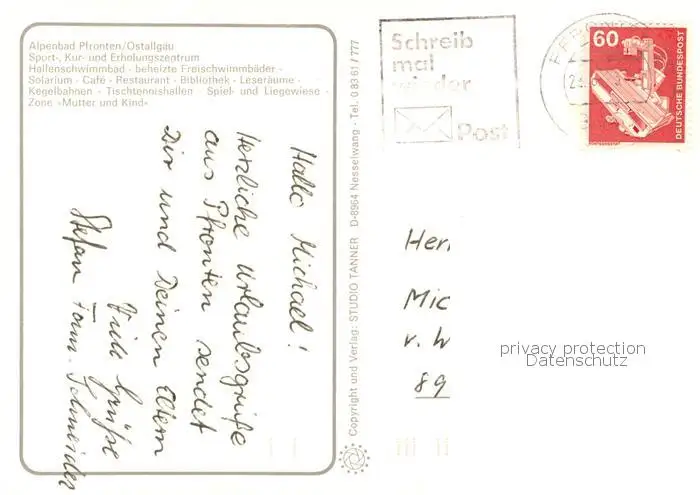 Alpenbad Pfronten/Ostallgäu
Sport-, Kur- und Erholungszentrum
Hallenschwimmbad · beheizte Freischwimmbäder ·
Solarium · Café · Restaurant · Bibliothek · Leseräume ·
Kegelbahnen · Tischtennishallen · Spiel- und Liegewiese ·
Zone »Mutter und Kind«
Hallo Michael!
Herzliche Urlaubsgrüße
aus Pfronten sendet
Dir und Deinen Eltern
Viele Grüße
Stefan Schneider
Copyright und Verlag: STUDIO TANNER D-8964 Nesselwang · Tel. 0 83 61 / 777
Schreib
mal
wieder
Post
60
DEUTSCHE BUNDESPOST
Herr
Mic
v. W
89
privacy protection
Datenschutz